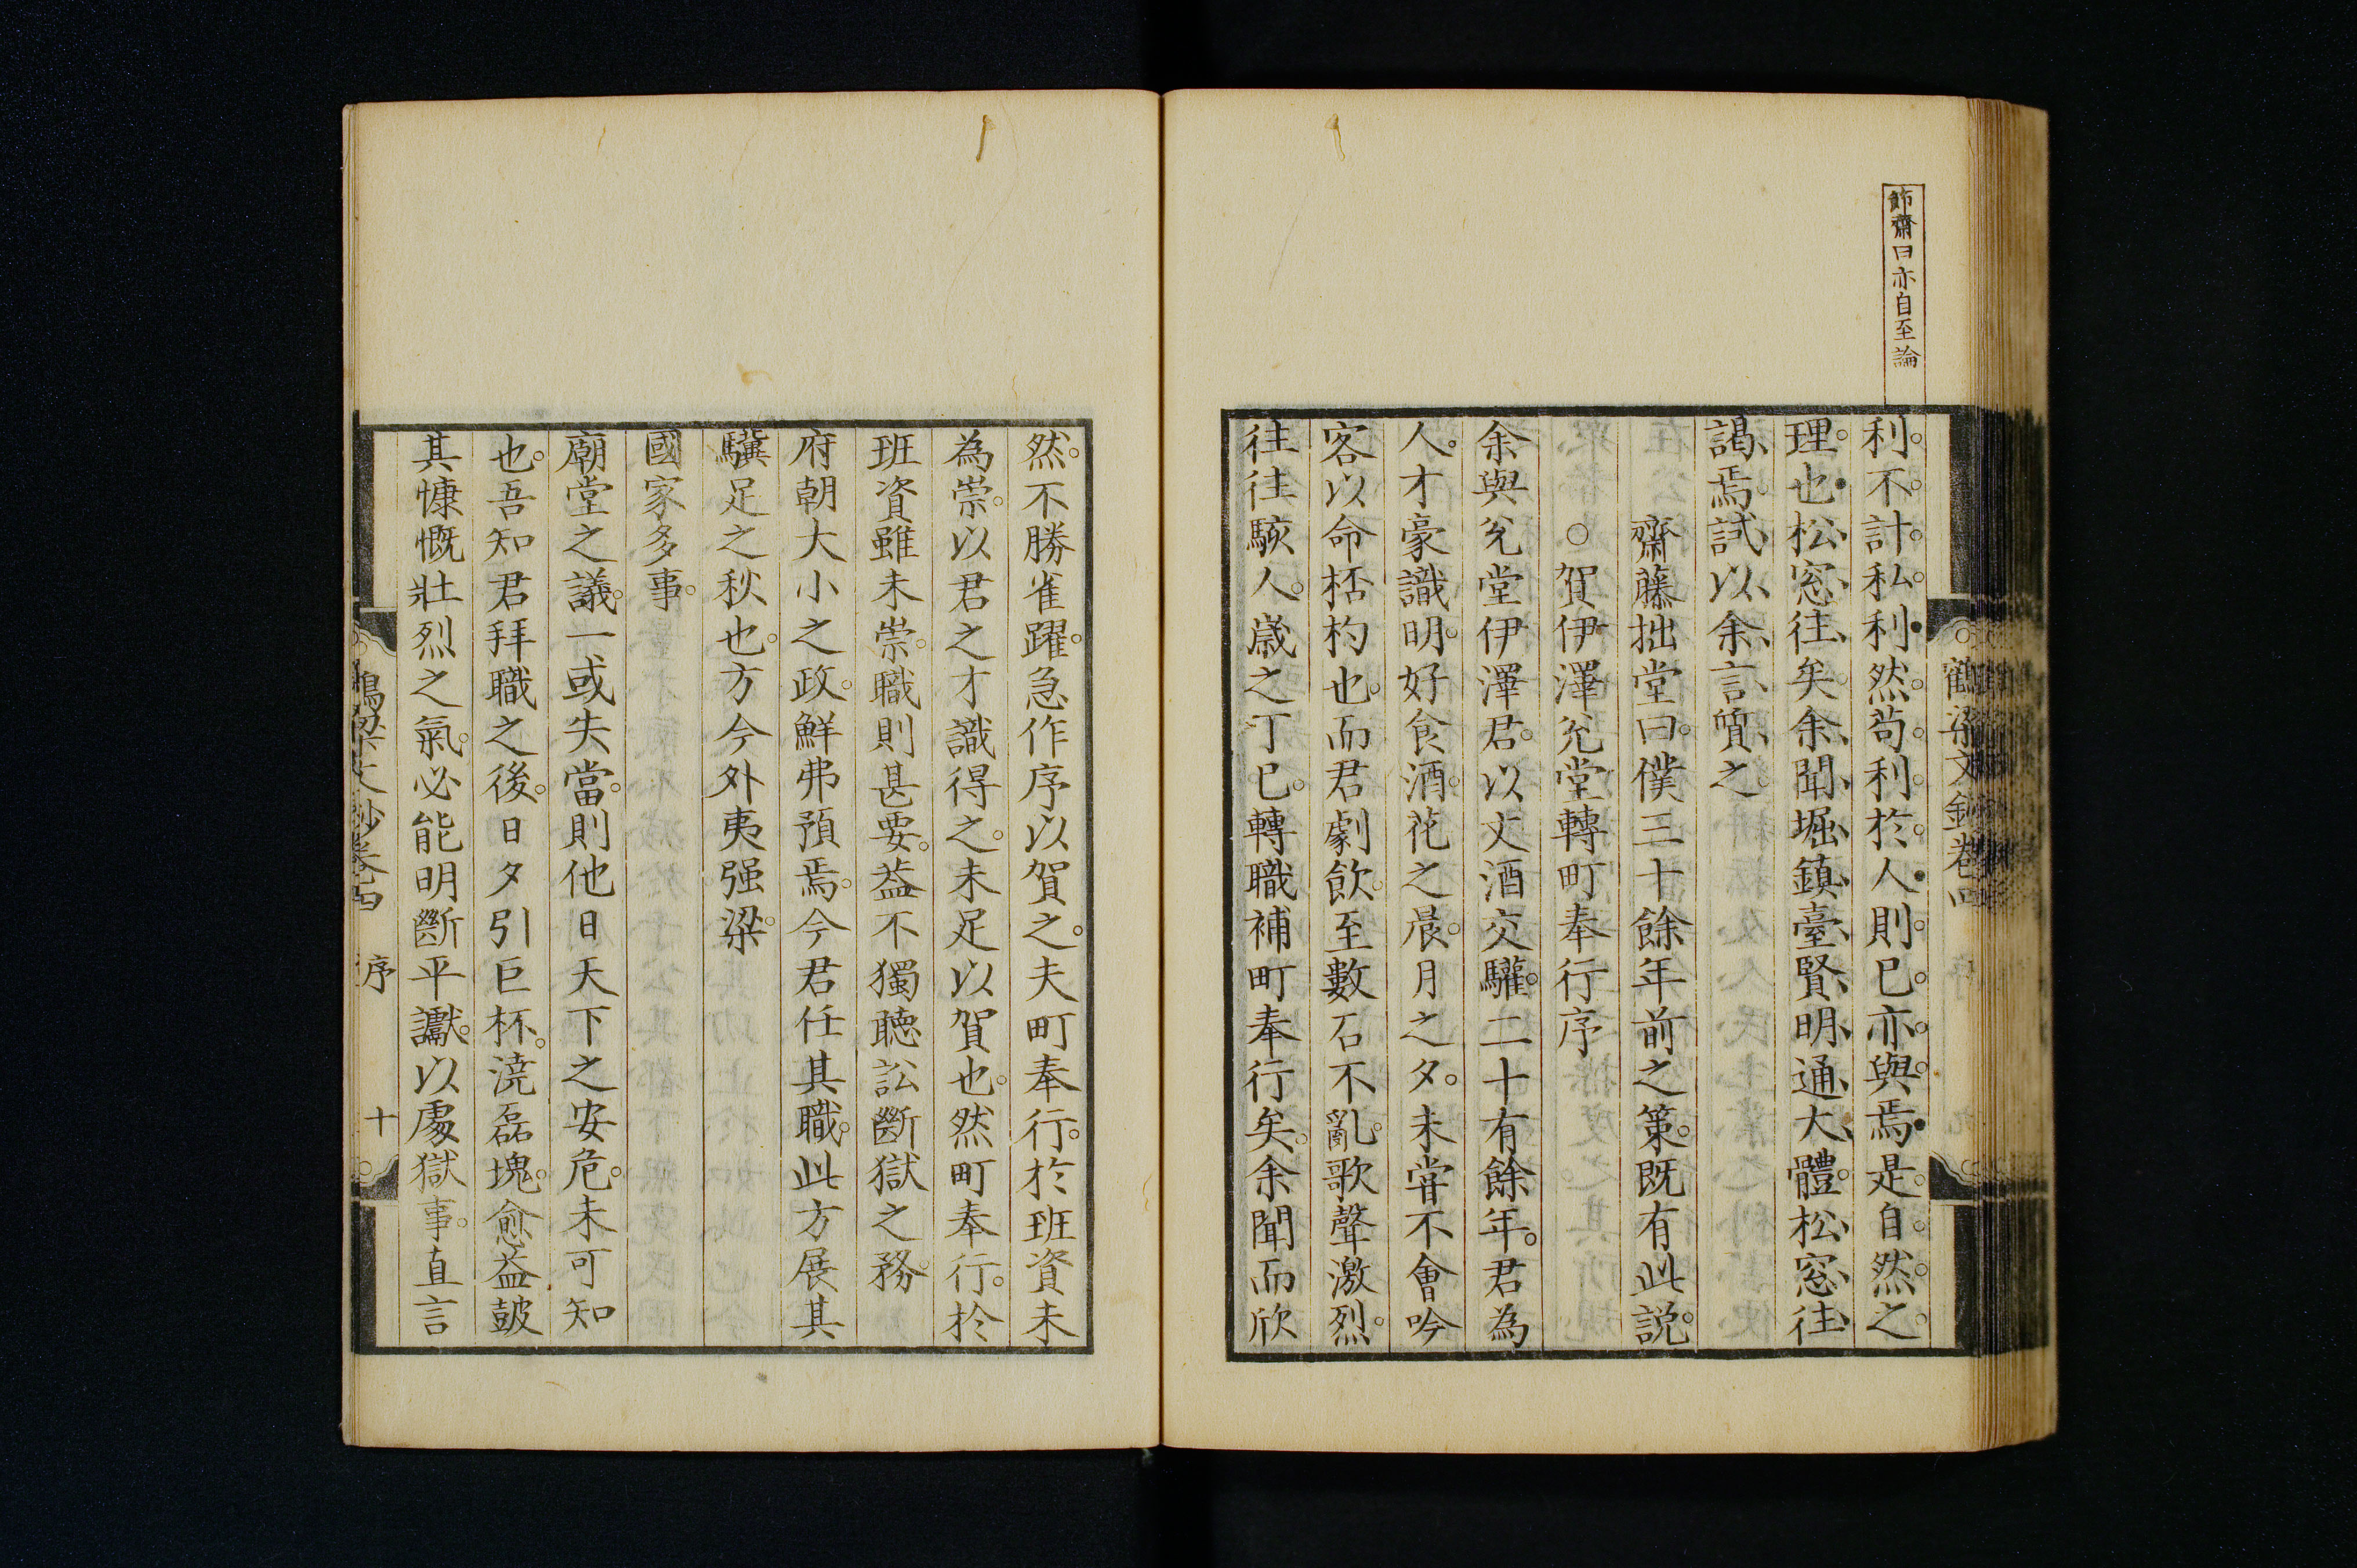 節齋曰亦自至論
鶴梁文鈔卷四
利。不。計。私。利然。苟。利。於。人則。已。亦。與。焉是。自。然。之。
理。也松、窓、往、矣、余、聞、堀、鎮、臺、賢、明、通、大、體。松、窓、往、
謁、焉、試、以、余、言、質、之、
齋藤拙堂曰。僕三十餘年前之策。既有此説。
○賀伊澤兊堂轉町奉行序
余與兊堂伊澤君。以文酒交驩。二十有餘年。君為
人。才豪識明。好食酒。花之晨。月之夕。未嘗不會吟
客以命桮杓也。而君劇飲。至數石不亂。歌聲激烈。
往往駭人。歳之丁巳。轉職補町奉行矣。余聞而欣
然。不勝雀躍。急作序以賀之。夫町奉行。於班資未
為崇。以君之才識得之。未足以賀也。然町奉行。於
班資雖未崇。職則甚要。葢不獨聽訟斷獄之務。
府朝大小之政。鮮弗預焉。今君任其職。此方展其
驥足之秋也。方今外夷强梁。
國家多事。
廟堂之議。一或失當。則他日天下之安危。未可知
也。吾知君拜職之後。日夕引巨杯。澆磊塊。愈益皷
其慷慨壯烈之氣。必能明斷平讞。以處獄事。直言
鶴梁文鈔卷四　序　十